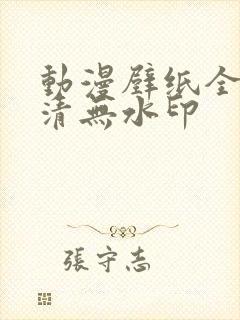 動漫壁纸全
清無水印
張守志